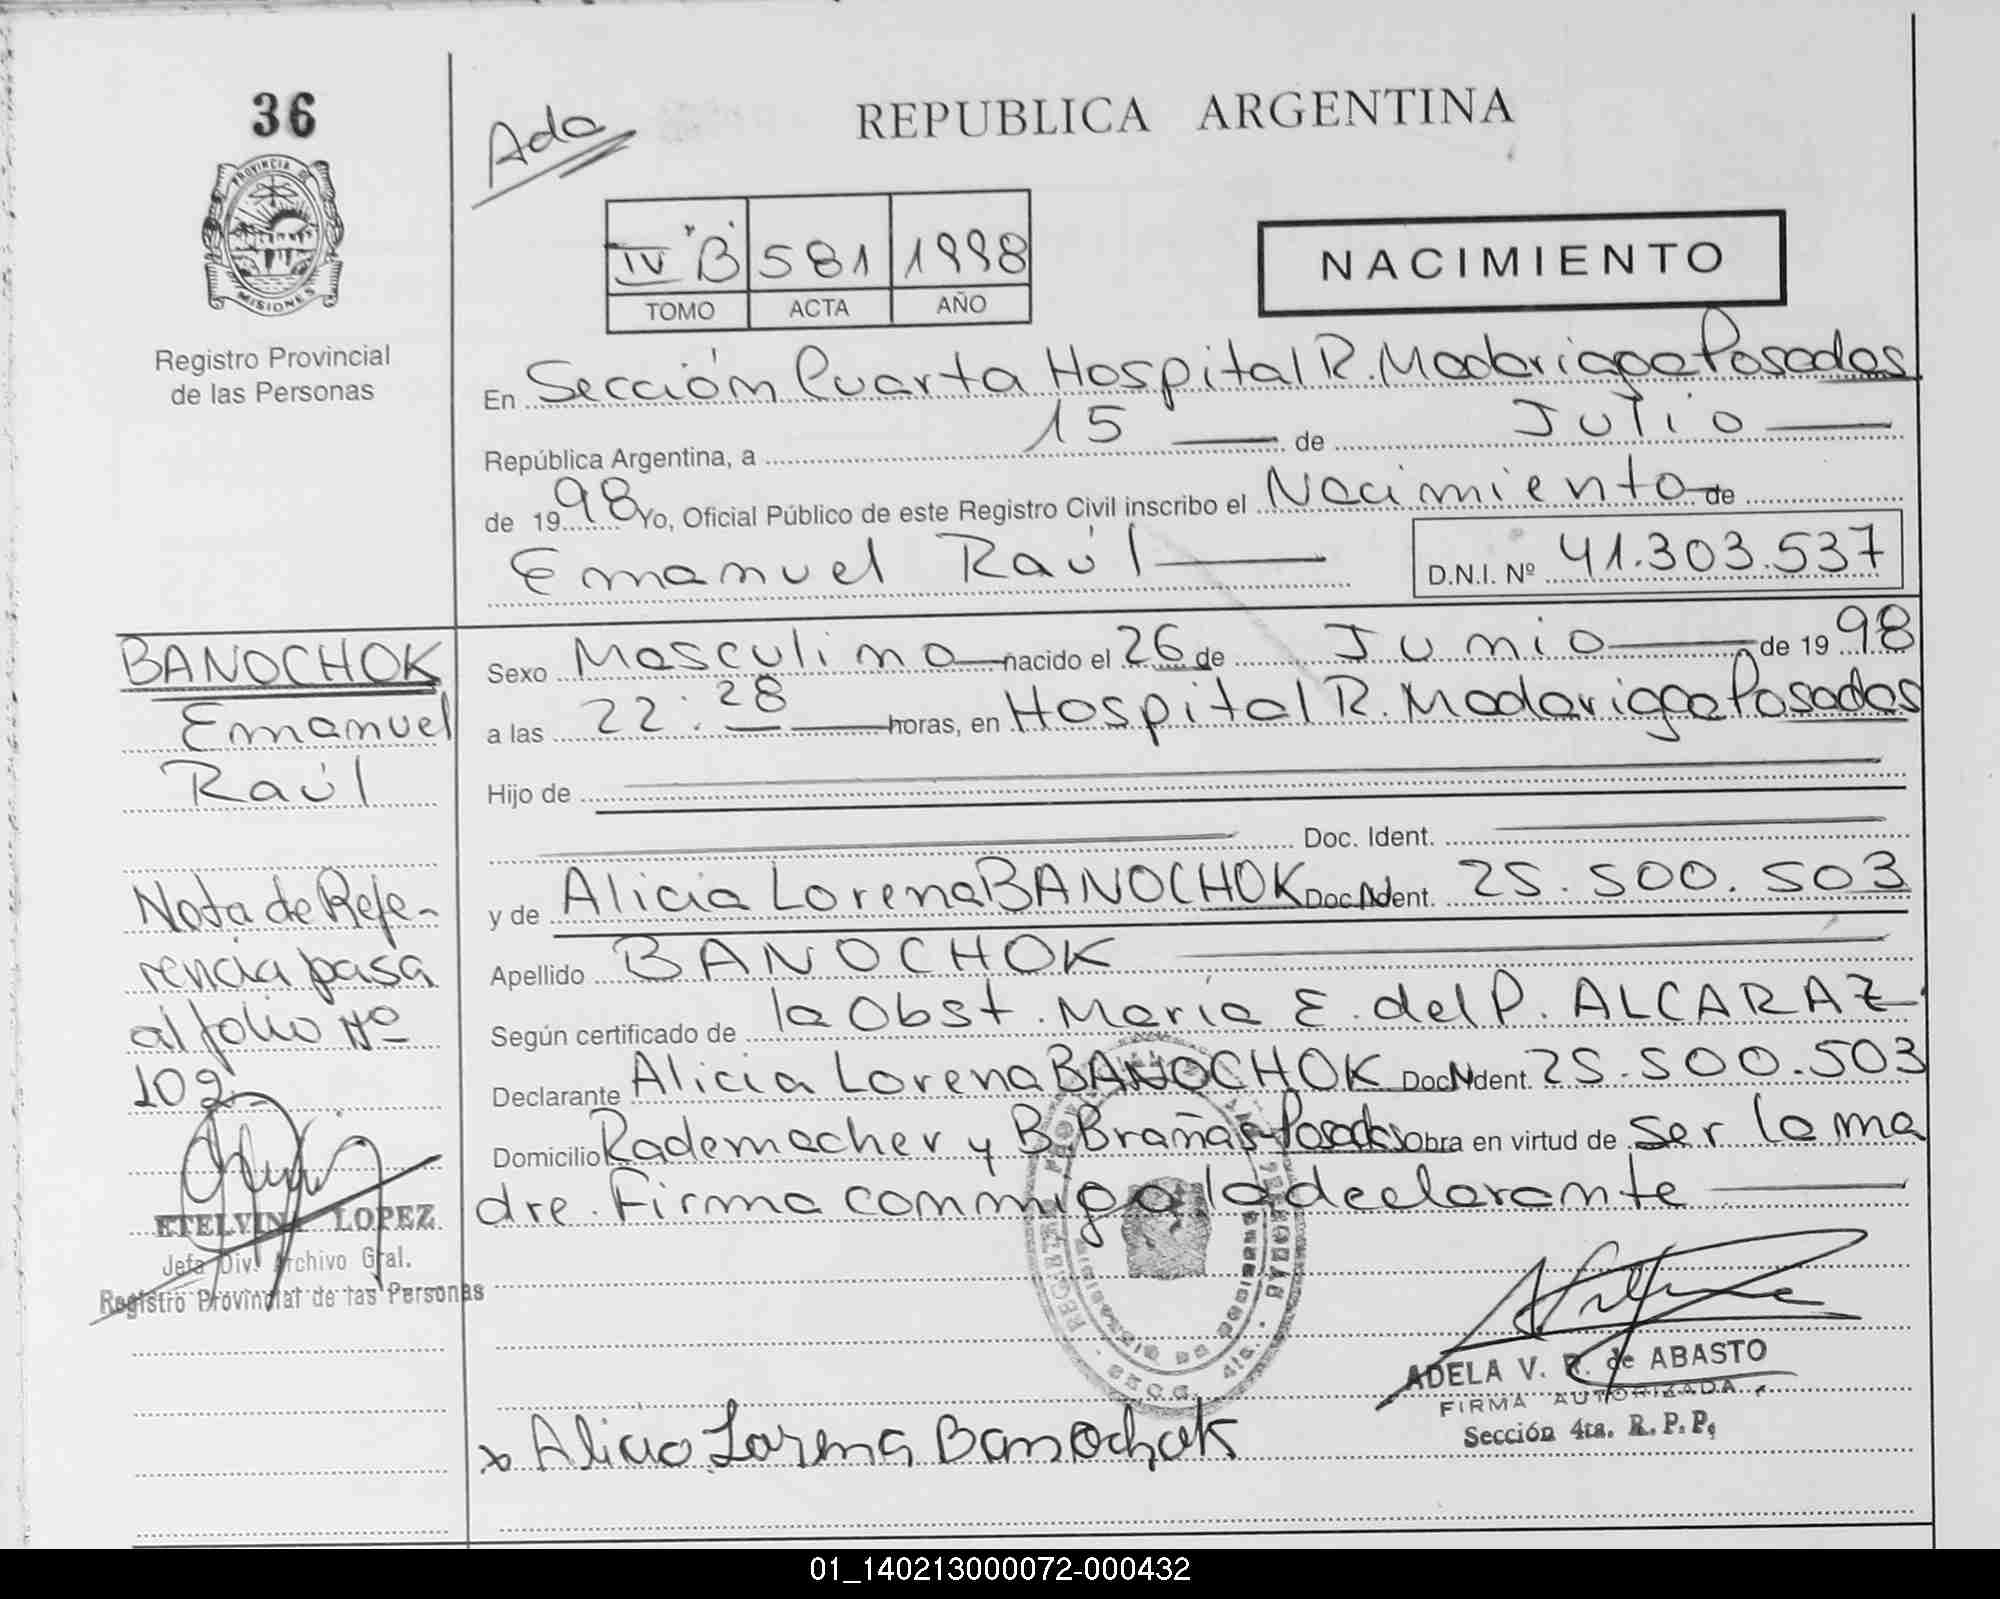 36
Ada
REPUBLICA ARGENTINA
PROVINCIA DE
MISIONES
Registro Provincial
de las Personas
IV "B" 581 1998
TOMO ACTA AÑO
NACIMIENTO
En Sección Cuarta Hospital R. Madariaga Posadas
República Argentina, a 15 de Julio
de 1998 Yo, Oficial Público de este Registro Civil inscribo el Nacimiento de
Emanuel Raúl D.N.I. Nº 41.303.537
BANOCHOK
Emanuel
Raúl
Sexo Masculino nacido el 26 de Junio de 1998
a las 22:28 horas, en Hospital R. Madariaga Posadas
Hijo de
Doc. Ident.
y de Alicia Lorena BANOCHOK Doc. Ident. 25.500.503
Apellido BANOCHOK
Según certificado de la Obst. María E. del P. ALCARAZ
Declarante Alicia Lorena BANOCHOK Doc. Ident. 25.500.503
Domicilio Rademacher y B. Brañas-Posadas Obra en virtud de ser la ma
dre. Firma conmigo la declarante
Nota de Refe-
rencia pasa
al folio Nº
102
ETELVINA LOPEZ
Jefa Div. Archivo Gral.
Registro Provincial de las Personas
ADELA V. R. de ABASTO
FIRMA AUTORIZADA
Sección 4ta. R.P.P.
x Alicia Lorena Banochok
01_140213000072-000432